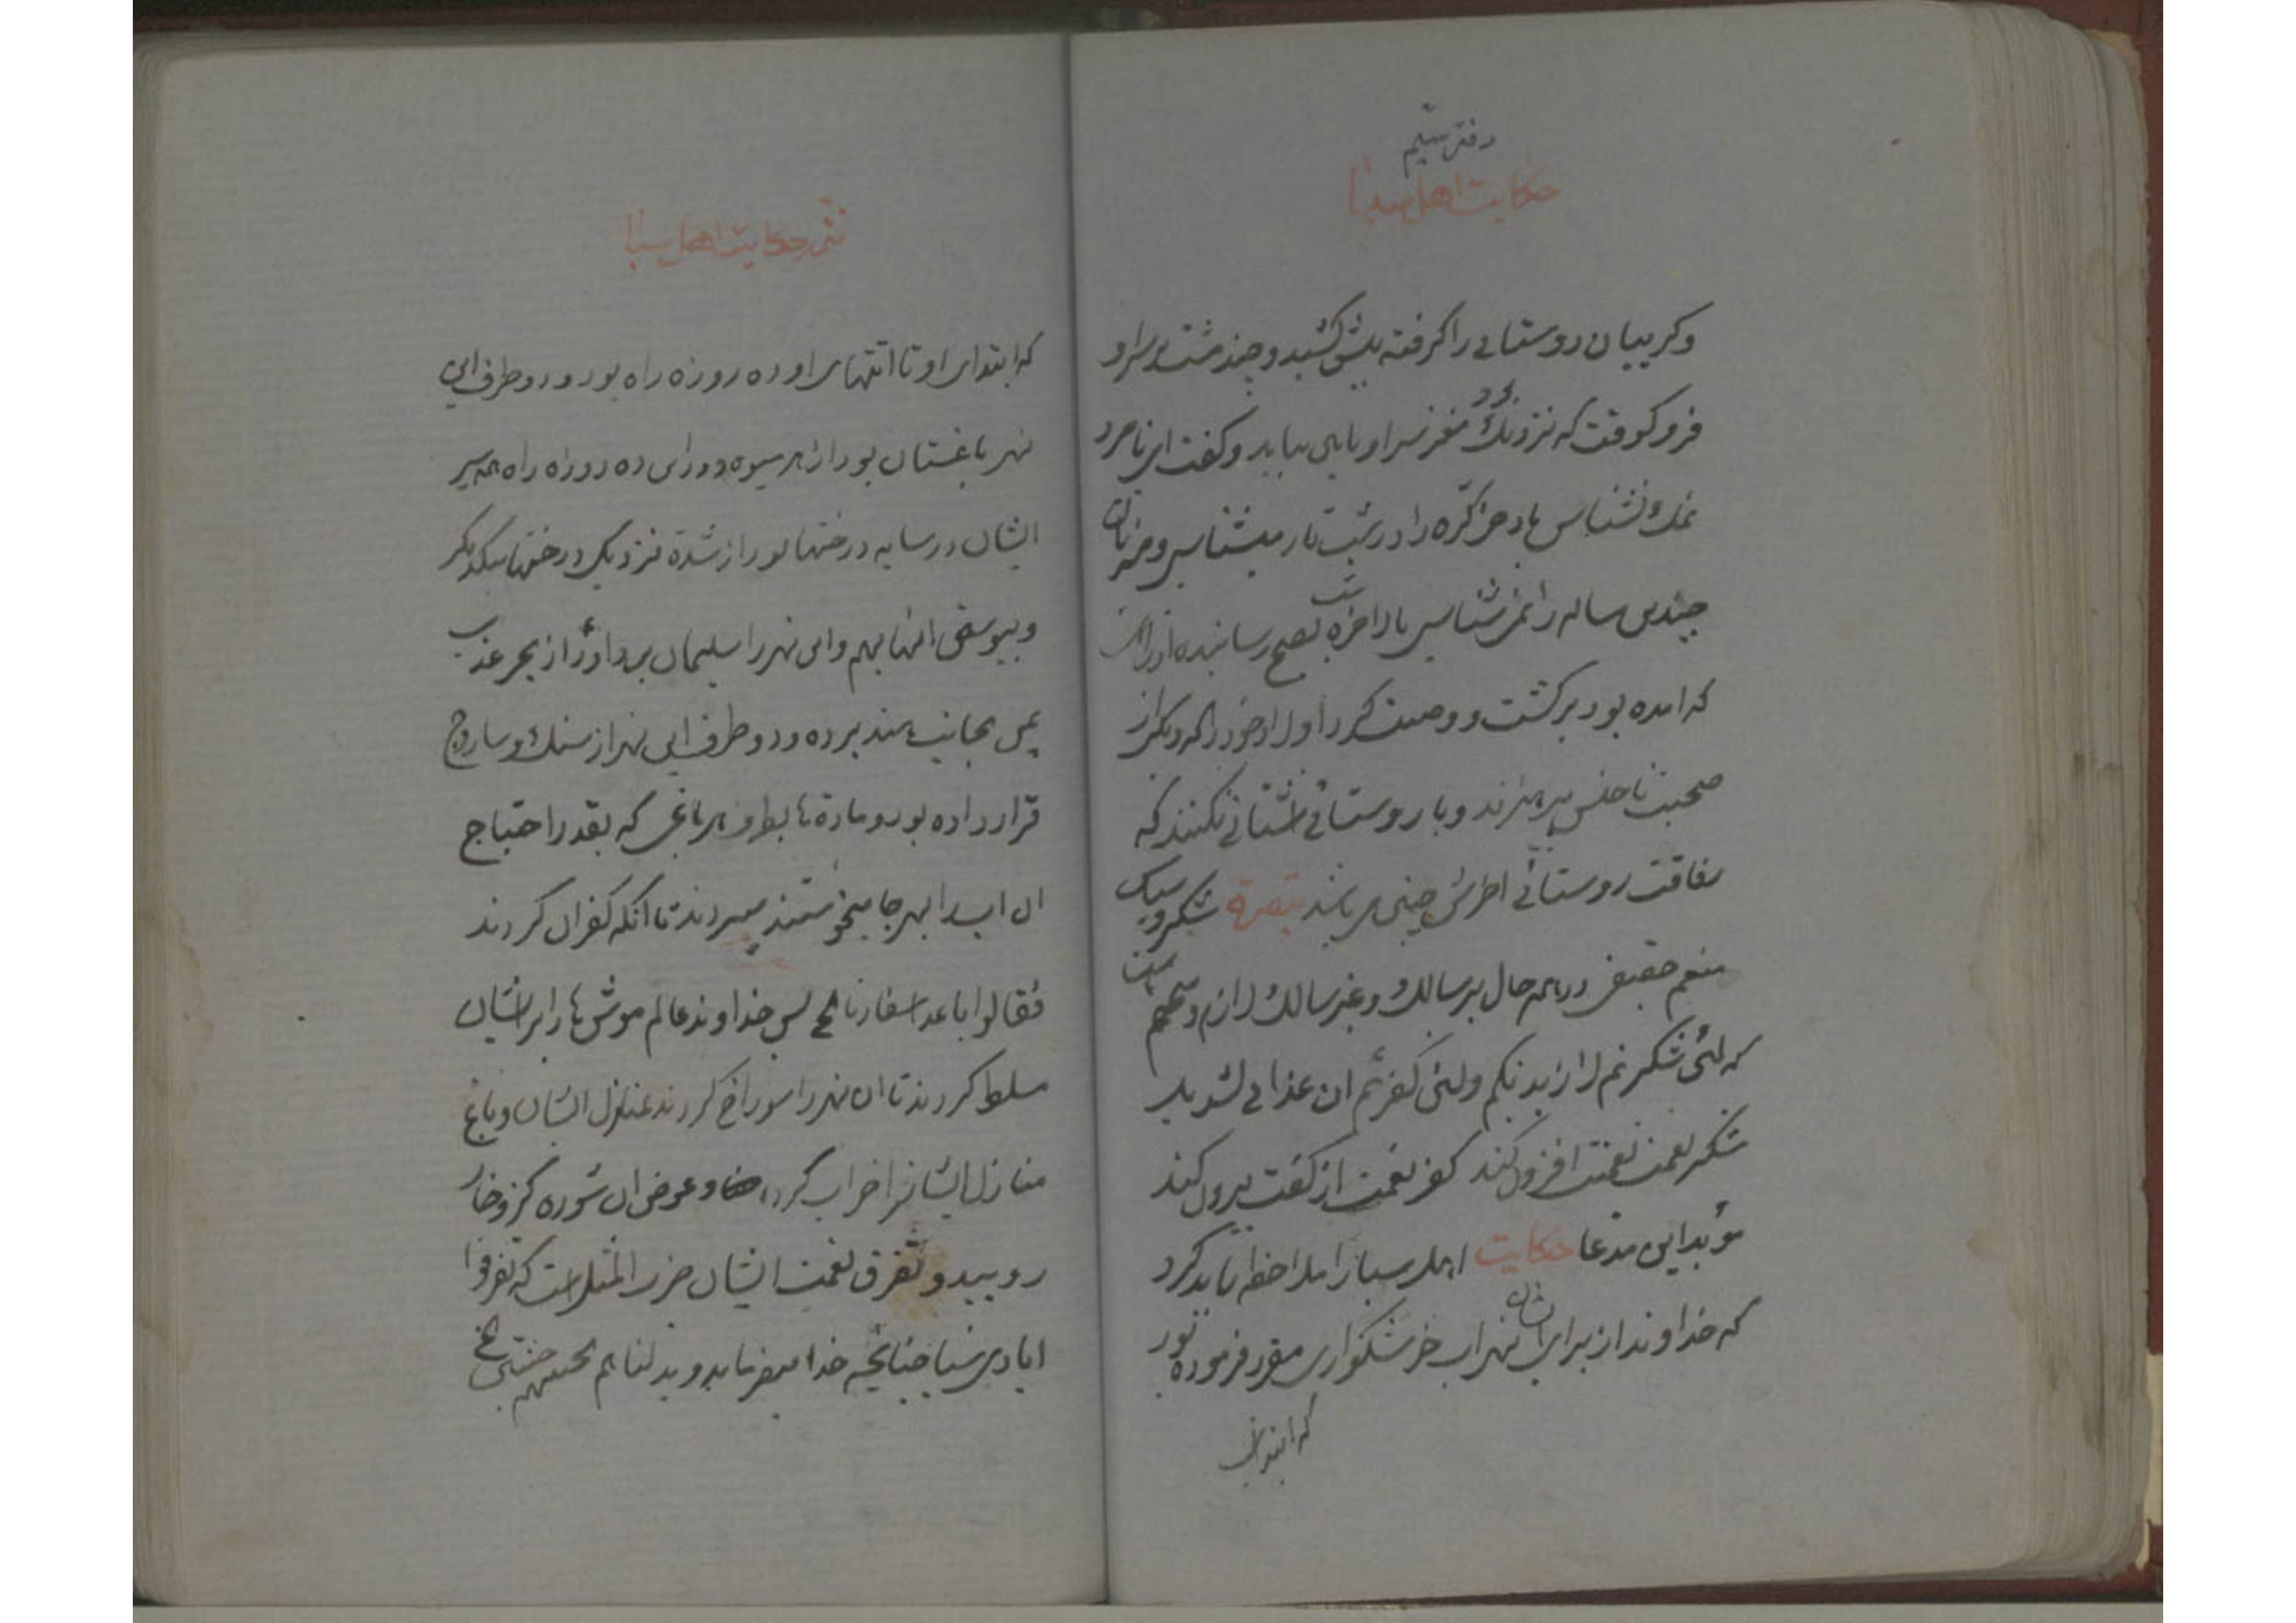 دفتر سیم
حکایت اهل سبا
و کریبان روستایی را کرفته پیش کشید و چند مشت بر سر او
فرو کوفت که نزدیک بود مغز سر او بیاید و کفت ای نامرد
نمک نشناس باد خر کرّه را در شب تار میشناسی و
چندین ساله را نمی شناسی بالاخره شب بصبح رسانیده از راهی
که امده بود برکشت و وصیت کرد اولاد خود را که دیکر از
صحبت ناجنس بپرهیزند و با روستائی اشنائی نکنند که
رفاقت روستائی اخرش چنین می باشد تبصرة شکر و سپاس
منعم حقیقی در همه حال بر سالک و غیر سالک لازم و متحتم است
که لئن شکرتم لازیدنکم ولئن کفرتم ان عذابی لشدید
شکر نعمت نعمتت افزون کند کفر نعمت از کفت بیرون کند
مؤید این مدعا حکایت اهل سبا را ملاحظه باید کرد
که خداوند از برای ایشان نهر اب خوشکواری مقرر فرموده بود
که ابتدای
تتمه حکایت اهل سبا
که ابتدای او تا انتهای او ده روزه راه بود و در دو طرف این
نهر باغستان بود از هر میوه و در این ده روزه راه همه سیر
ایشان در سایه درختها بود از شدة نزدیک درختها بیکدیکر
و پیوستن انها بهم و این نهر را سلیمان بن داود از بحر عذب
یمن بجانب هند برده و دو طرف این نهر از سنک و ساروج
قرار داده بود و مادة ها بطرف هر باغی که بقدر احتیاج
ان اب را بهر جا میخواستند میبردند تا انکه کفران کردند
فقالوا باعد اسفارنا الخ پس خداوند عالم موش ها را بر ایشان
مسلط کردند تا ان نهر را سوراخ کردند منازل ایشان و باغ
منازل ایشانرا خراب کرد و عوض ان شوره کز و خار
رویید و تفرق نعمت ایشان ضرب المثل است که تفرقوا
ایادی سبا چنانچه خدا میفرماید و بدلناهم بجنتیهم جنتین الخ